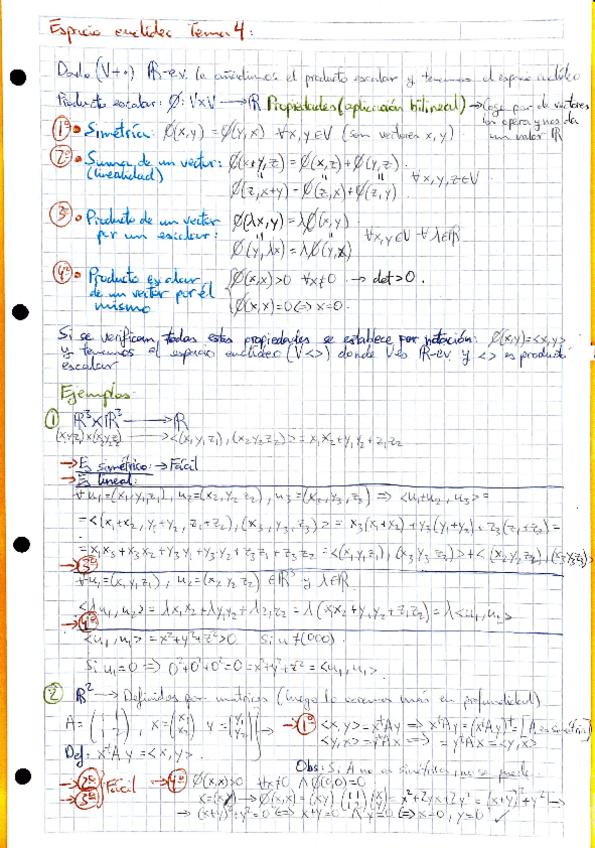 Espacio euclídeo Tema 4:
Dado (V+·) R-ev. le añadimos el producto escalar y tenemos el espacio euclídeo
Producto escalar: Ø: V×V → R Propiedades (aplicación bilineal) → Coge par de vectores
los opera y nos da
un valor R
1º • Simetría: Ø(x,y) = Ø(y,x) ∀x,y∈V (son vectores x,y).
2º • Suma de un vector: Ø(x+y,z) = Ø(x,z)+Ø(y,z).
(linealidad) ∀x,y,z∈V
Ø(z,x+y) = Ø(z,x)+Ø(z,y)
3º • Producto de un vector Ø(λx,y) = λØ(x,y)
por un escalar: ∀x,y∈V ∀λ∈R
Ø(y,λx) = λØ(y,x)
4º • Producto escalar Ø(x,x)>0 ∀x≠0 → det>0.
de un vector por él
mismo Ø(x,x)=0 ⇔ x=0.
Si se verifican todas estas propiedades se establece por notación: Ø(x,y)=<x,y>
y tenemos el espacio euclídeo (V<>) donde V es R-ev. y <> es producto
escalar
Ejemplos:
① R³×R³ → R
(x₁y₁z₁)×(x₂y₂z₂) → <(x₁y₁z₁),(x₂y₂z₂)> = x₁x₂+y₁y₂+z₁z₂
→ Es simétrico: → Fácil
→ Es lineal:
∀u₁=(x₁,y₁,z₁), u₂=(x₂,y₂,z₂), u₃=(x₃,y₃,z₃) ⇒ <u₁+u₂, u₃> =
= <(x₁+x₂, y₁+y₂, z₁+z₂), (x₃,y₃,z₃)> = x₃(x₁+x₂)+y₃(y₁+y₂)+z₃(z₁+z₂) =
= x₁x₃+x₃x₂+y₃y₁+y₃y₂+z₃z₁+z₃z₂ = <(x₁y₁z₁),(x₃y₃z₃)>+<(x₂y₂z₂),(x₃y₃z₃)>
→ 3º
∀u₁=(x₁,y₁z₁), u₂=(x₂y₂z₂) ∈R³ y λ∈R
<λu₁,u₂> = λx₁x₂+λy₁y₂+λz₁z₂ = λ(x₁x₂+y₁y₂+z₁z₂) = λ<u₁,u₂>
→ 4º
<u₁,u₁> = x²+y²+z²>0 Si u≠(000).
Si u₁=0 ⇒ 0²+0²+0²=0=x²+y²+z² = <u₁,u₁>
② R² → Definidos por matrices (luego lo veremos más en profundidad)
→ 1º <x,y>=xᵗAy ⇒ xᵗAy=(xᵗAy)ᵗ=[A es simétrica]
<y,x>=yᵗAx ⇒ =yᵗAx=<y,x>
Def: xᵗAy=<x,y>.
Obs: Si A no es simétrica, no se puede
→ 2º Fácil → 4º Ø(x,x)>0 ∀x≠0 ∧ Ø(0,0)=0
→ 3º
→ (x+y)²+y²=0 ⇔ x+y=0 ∧ y=0 ⇔ x=0, y=0